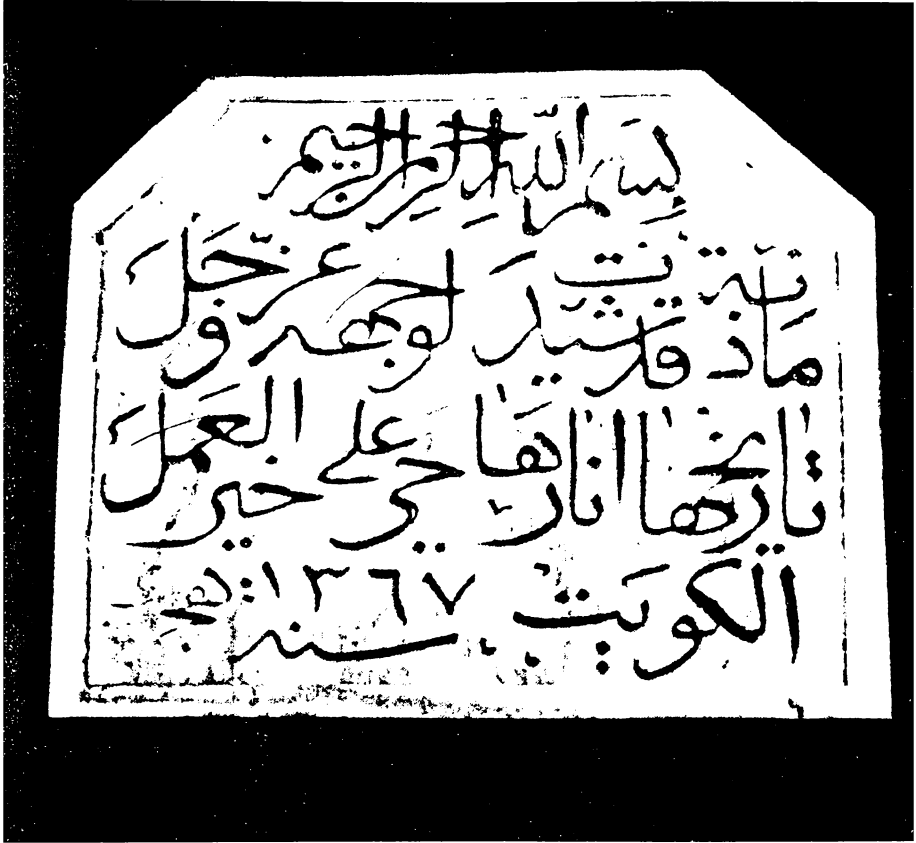 بِسْمِ اللّٰهِ الرحمن الرحيم
مَأذنة قد شيدَت لوجهه عزّ وجَلَ
تاريخها انارها حي على خير العمَلَ
الكويت سنه ١٣٦٧ هج